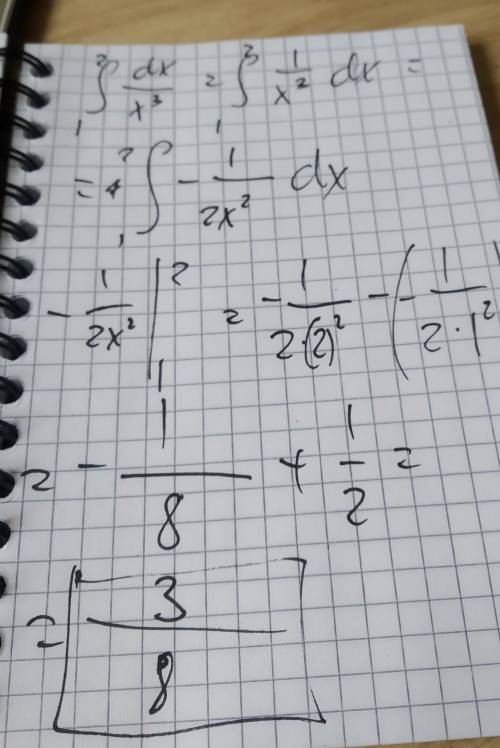 ∫₁² dx/x³ = ∫₁³ 1/x² dx =
= ∫₁² - 1/2x² dx
- 1/2x² |₁² = - 1/2·(2)² - (- 1/2·1²
= - 1/8 + 1/2 =
= 3/8